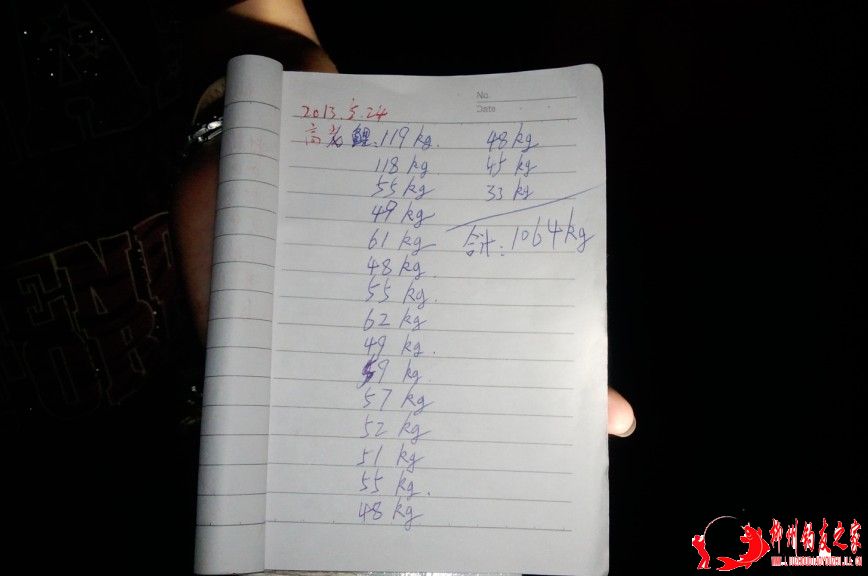 No.
Date
2013.5.24
高 鲤:119 kg. 48 kg
118 kg 45 kg
55 kg 33 kg
49 kg
61 kg 合计:1064kg
48 kg.
55 kg.
62 kg
49 kg.
59 kg
57 kg
52 kg
51 kg
55 kg.
48 kg
柳州钓友之家